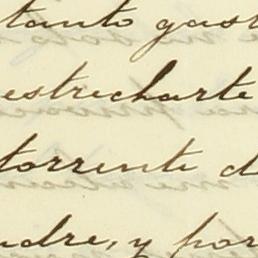 tanto gust
estrecharte
torrente d
adre, y por